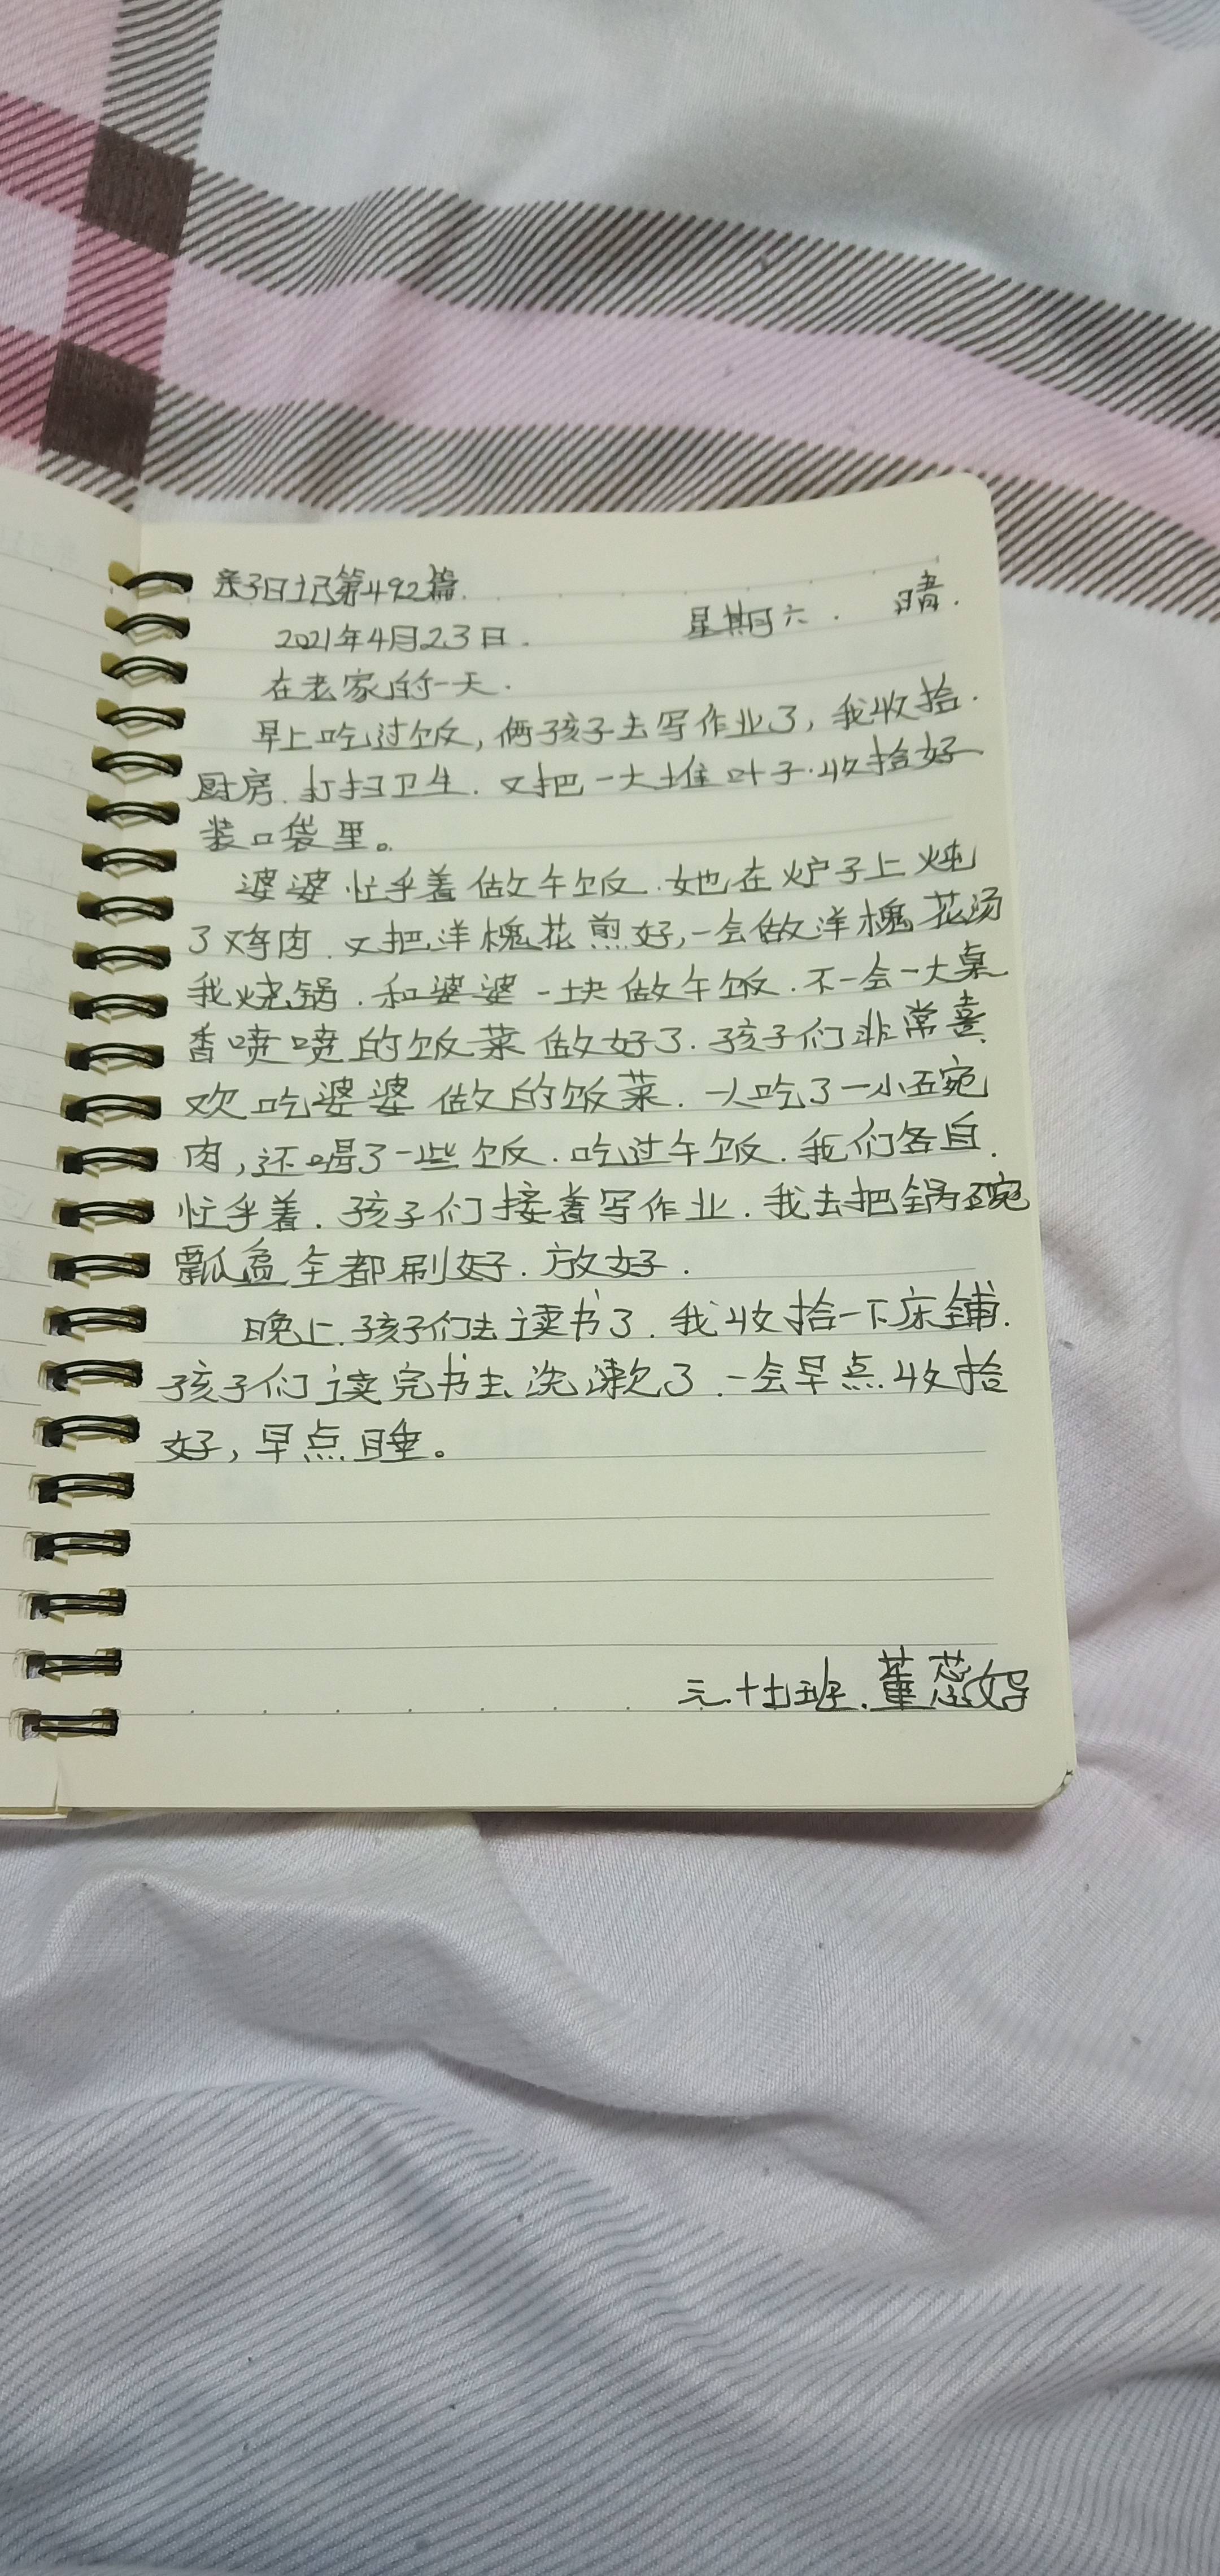 亲子日记第492篇.
2021年4月23日. 星期六. 晴.
在老家的一天.
早上吃过饭,俩孩子去写作业了,我收拾.
厨房.打扫卫生.又把一大堆叶子.收拾好
装口袋里。
婆婆忙乎着做午饭.她在炉子上炖
了鸡肉.又把洋槐花煎好,一会做洋槐花汤
我烧锅.和婆婆一块做午饭.不一会一大桌
香喷喷的饭菜做好了.孩子们非常喜
欢吃婆婆做的饭菜.一人吃了一小碗
肉,还喝了一些饭.吃过午饭.我们各自.
忙乎着.孩子们接着写作业.我去把锅碗
瓢盆全都刷好.放好.
晚上.孩子们去读书了.我收拾一下床铺.
孩子们读完书去洗漱了.一会早点收拾
好,早点睡。
三.十七班.董蕊妤